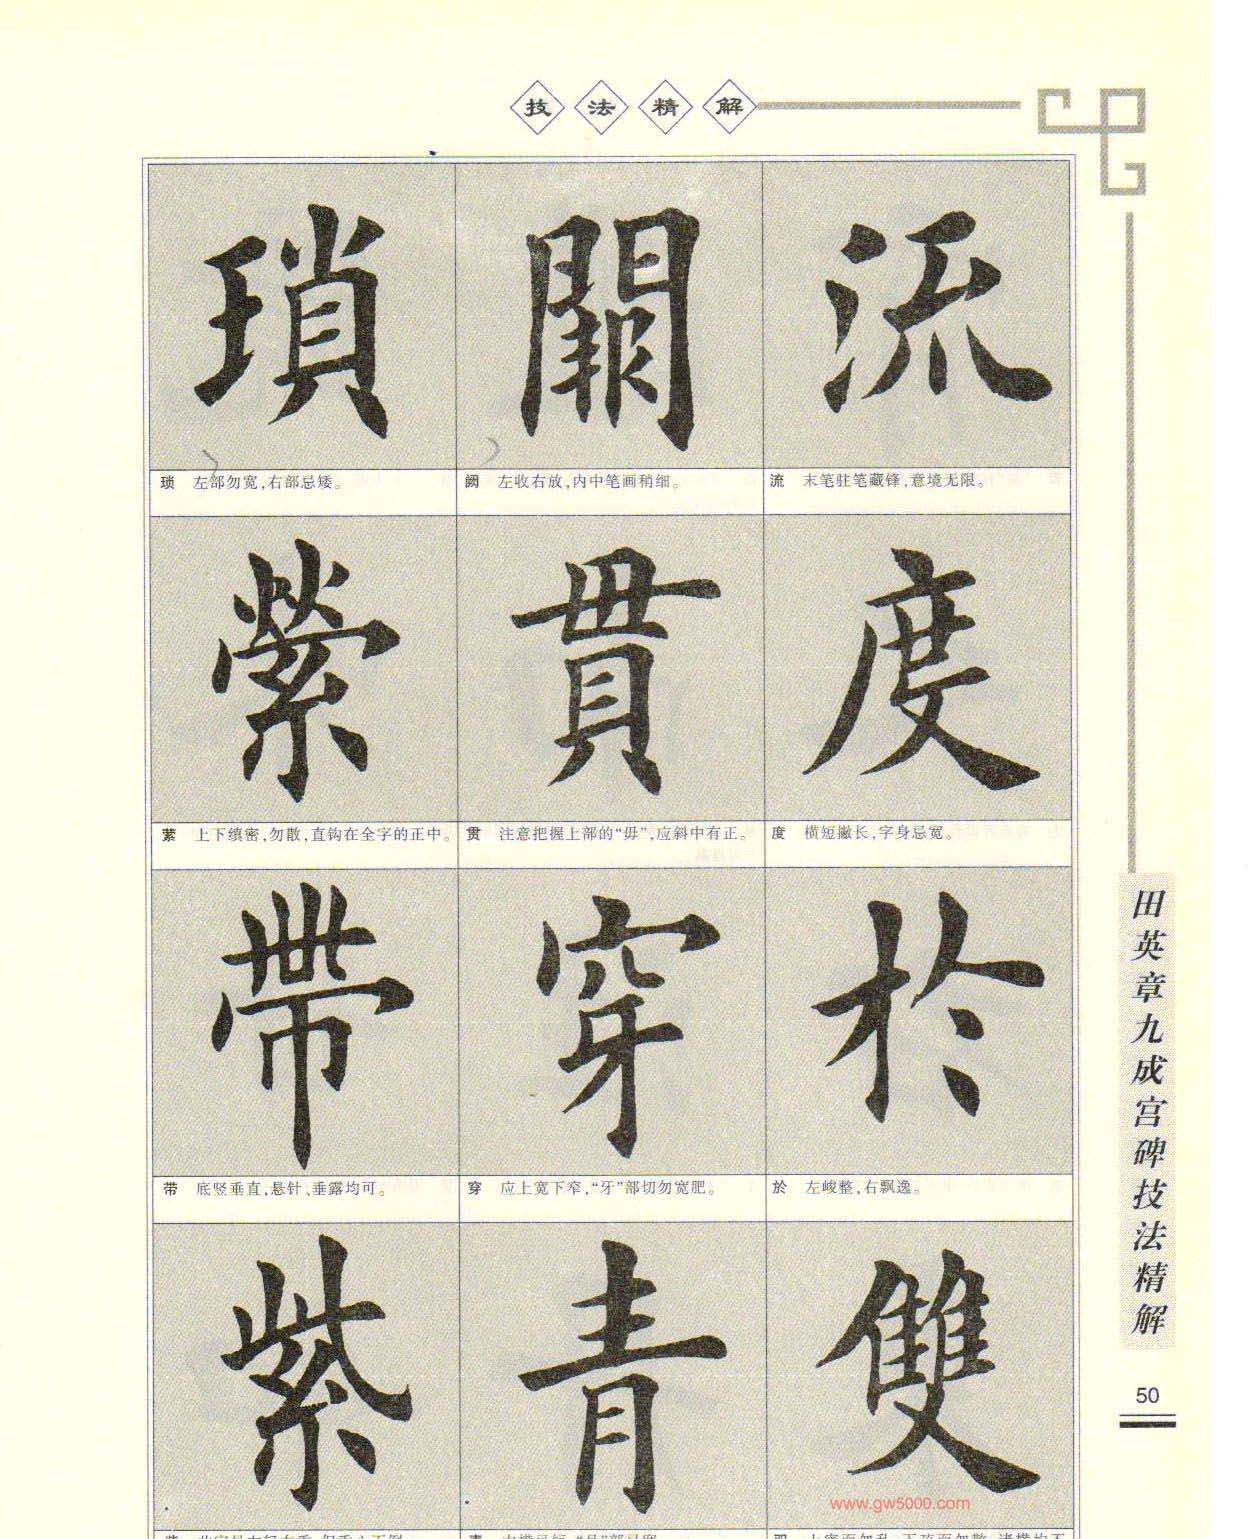 技法精解
瑣 闕 流
琐 左部勿宽,右部忌矮。
阙 左收右放,内中笔画稍细。
流 末笔驻笔藏锋,意境无限。
縈 貫 度
萦 上下缜密,勿散,直钩在全字的正中。
贯 注意把握上部的“毋”,应斜中有正。
度 横短撇长,字身忌宽。
帶 穿 於
带 底竖垂直,悬针、垂露均可。
穿 应上宽下窄,“牙”部切勿宽肥。
於 左峻整,右飘逸。
紫 青 雙
田英章九成宫碑技法精解
50
www.gw5000.com